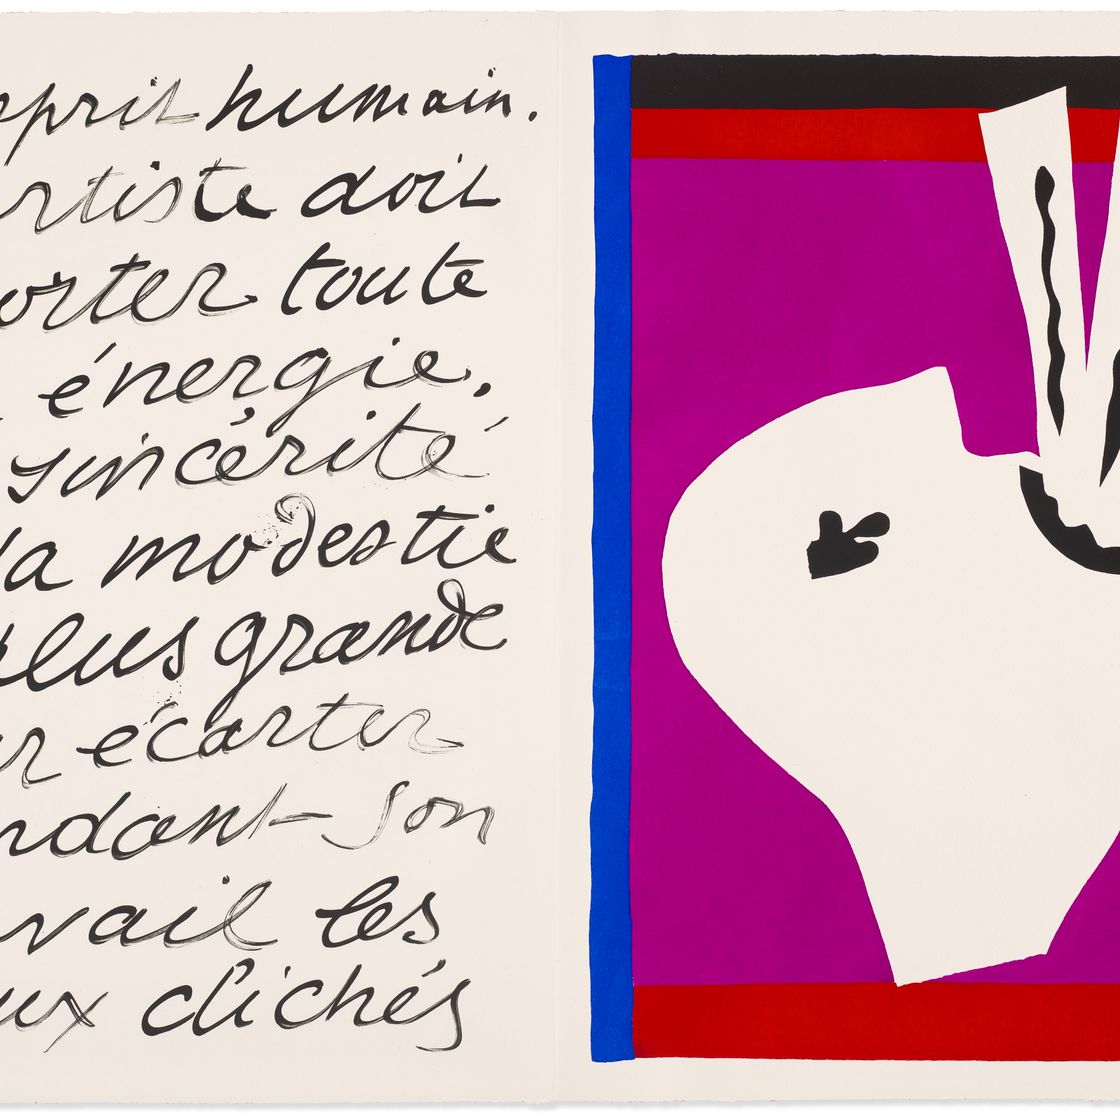 sprit humain.
rtiste doit
orter toute
énergie,
sincérité
la modestie
plus grande
ur écarter
ndant son
vail les
ux clichés